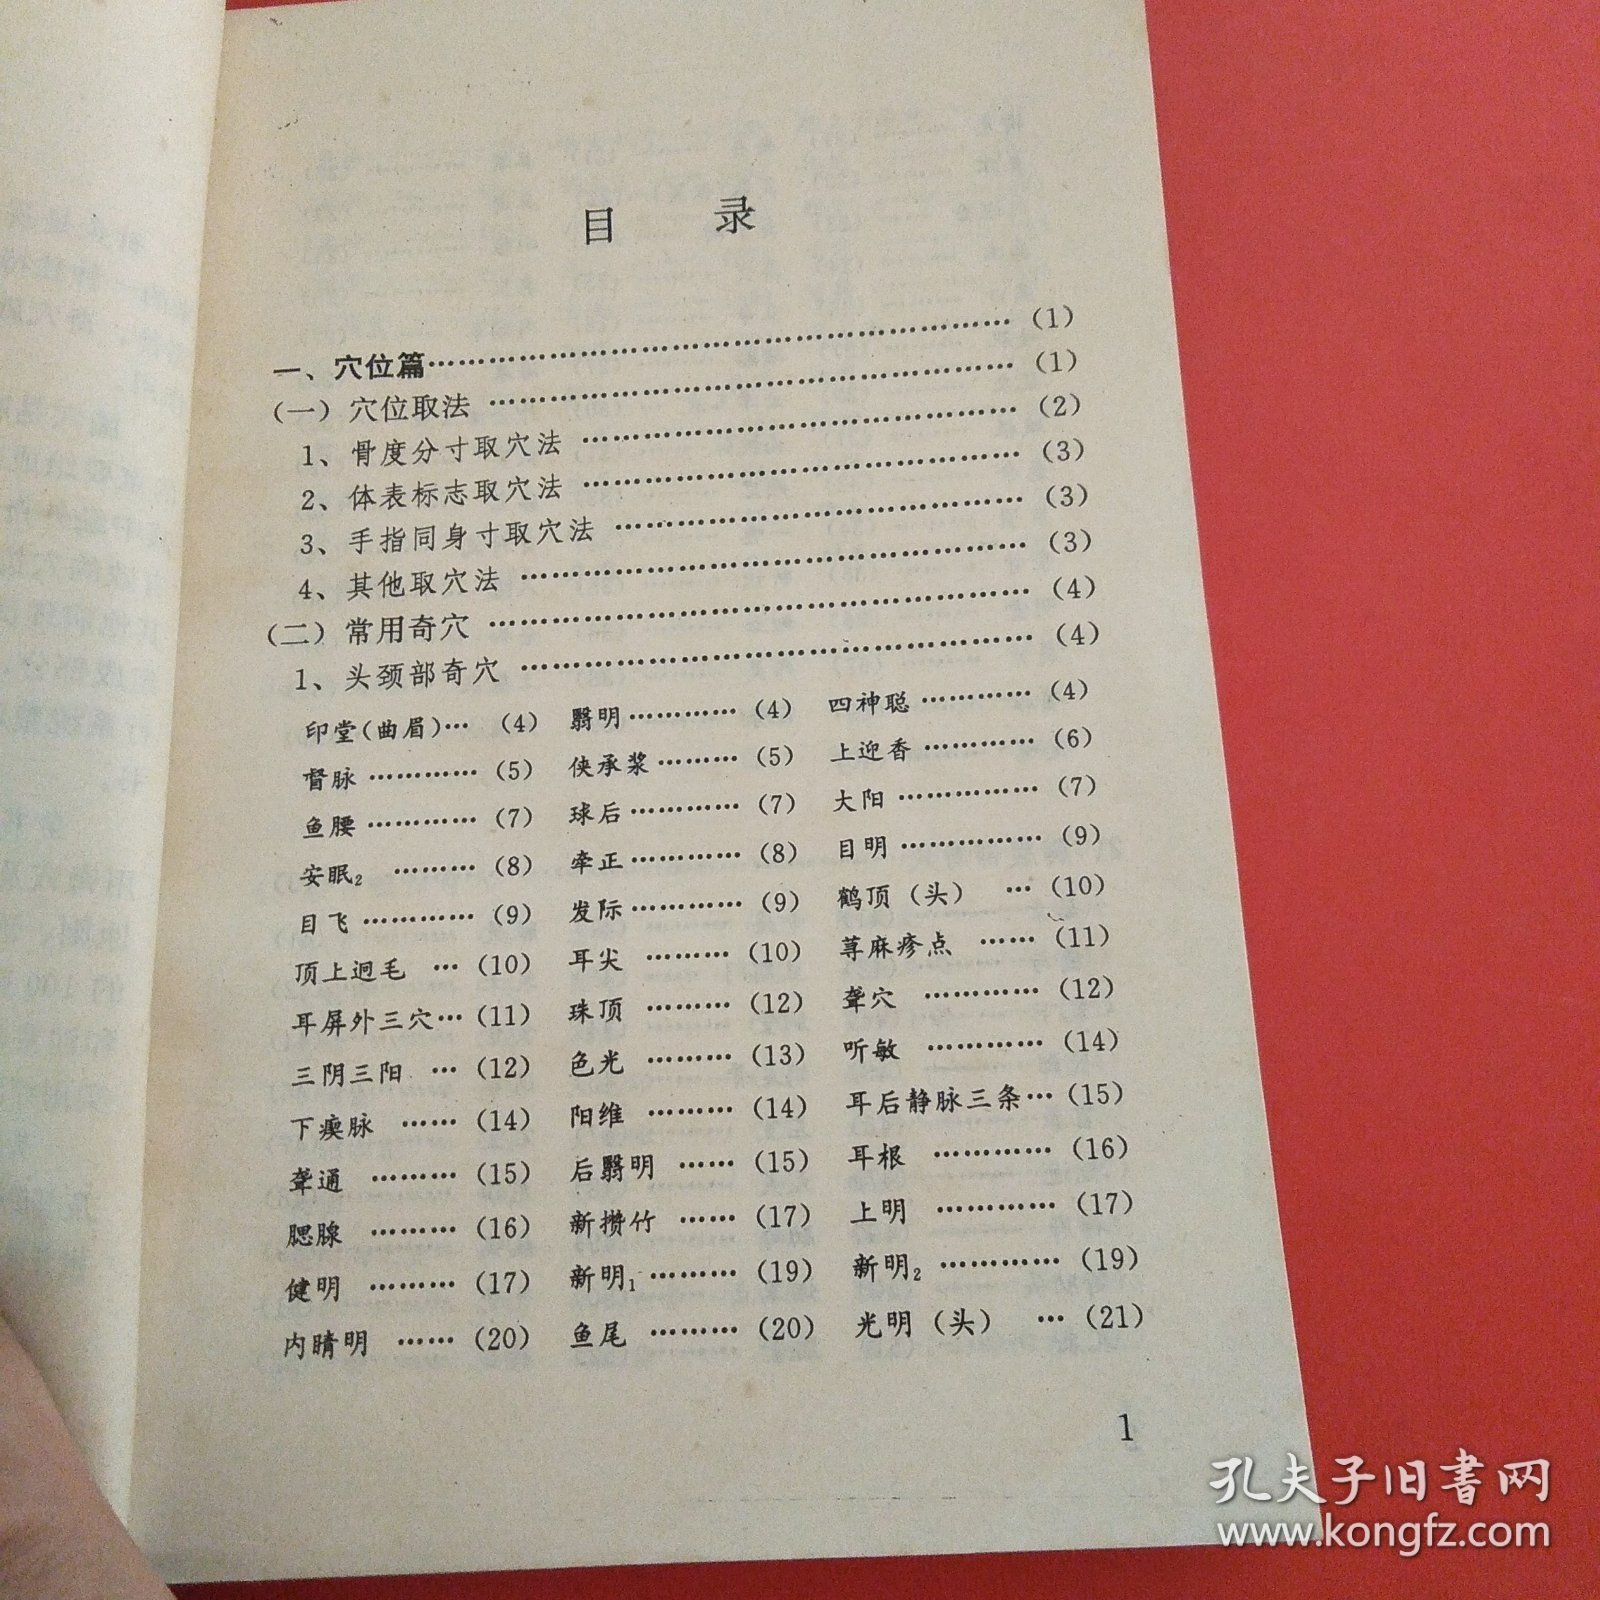 目 录
一、穴位篇……………………………………………(1)
(一)穴位取法……………………………………………(1)
1、骨度分寸取穴法……………………………………(2)
2、体表标志取穴法……………………………………(3)
3、手指同身寸取穴法…………………………………(3)
4、其他取穴法…………………………………………(3)
(二)常用奇穴……………………………………………(4)
1、头颈部奇穴…………………………………………(4)
印堂(曲眉)… (4) 翳明………… (4) 四神聪………… (4)
督脉………… (5) 侠承浆……… (5) 上迎香………… (6)
鱼腰………… (7) 球后………… (7) 大阳…………… (7)
安眠₂ ……… (8) 牵正………… (8) 目明…………… (9)
目飞………… (9) 发际………… (9) 鹤顶(头) … (10)
顶上迥毛 … (10) 耳尖 ……… (10) 荨麻疹点 …… (11)
耳屏外三穴… (11) 珠顶 ……… (12) 聋穴 ………… (12)
三阴三阳 … (12) 色光 ……… (13) 听敏 ………… (14)
下瘈脉 …… (14) 阳维 ……… (14) 耳后静脉三条… (15)
聋通 ……… (15) 后翳明 …… (15) 耳根 ………… (16)
腮腺 ……… (16) 新攒竹 …… (17) 上明 ………… (17)
健明 ……… (17) 新明₁……… (19) 新明₂ ………… (19)
内睛明 …… (20) 鱼尾 ……… (20) 光明(头) … (21)
1
孔夫子旧书网
www.kongfz.com